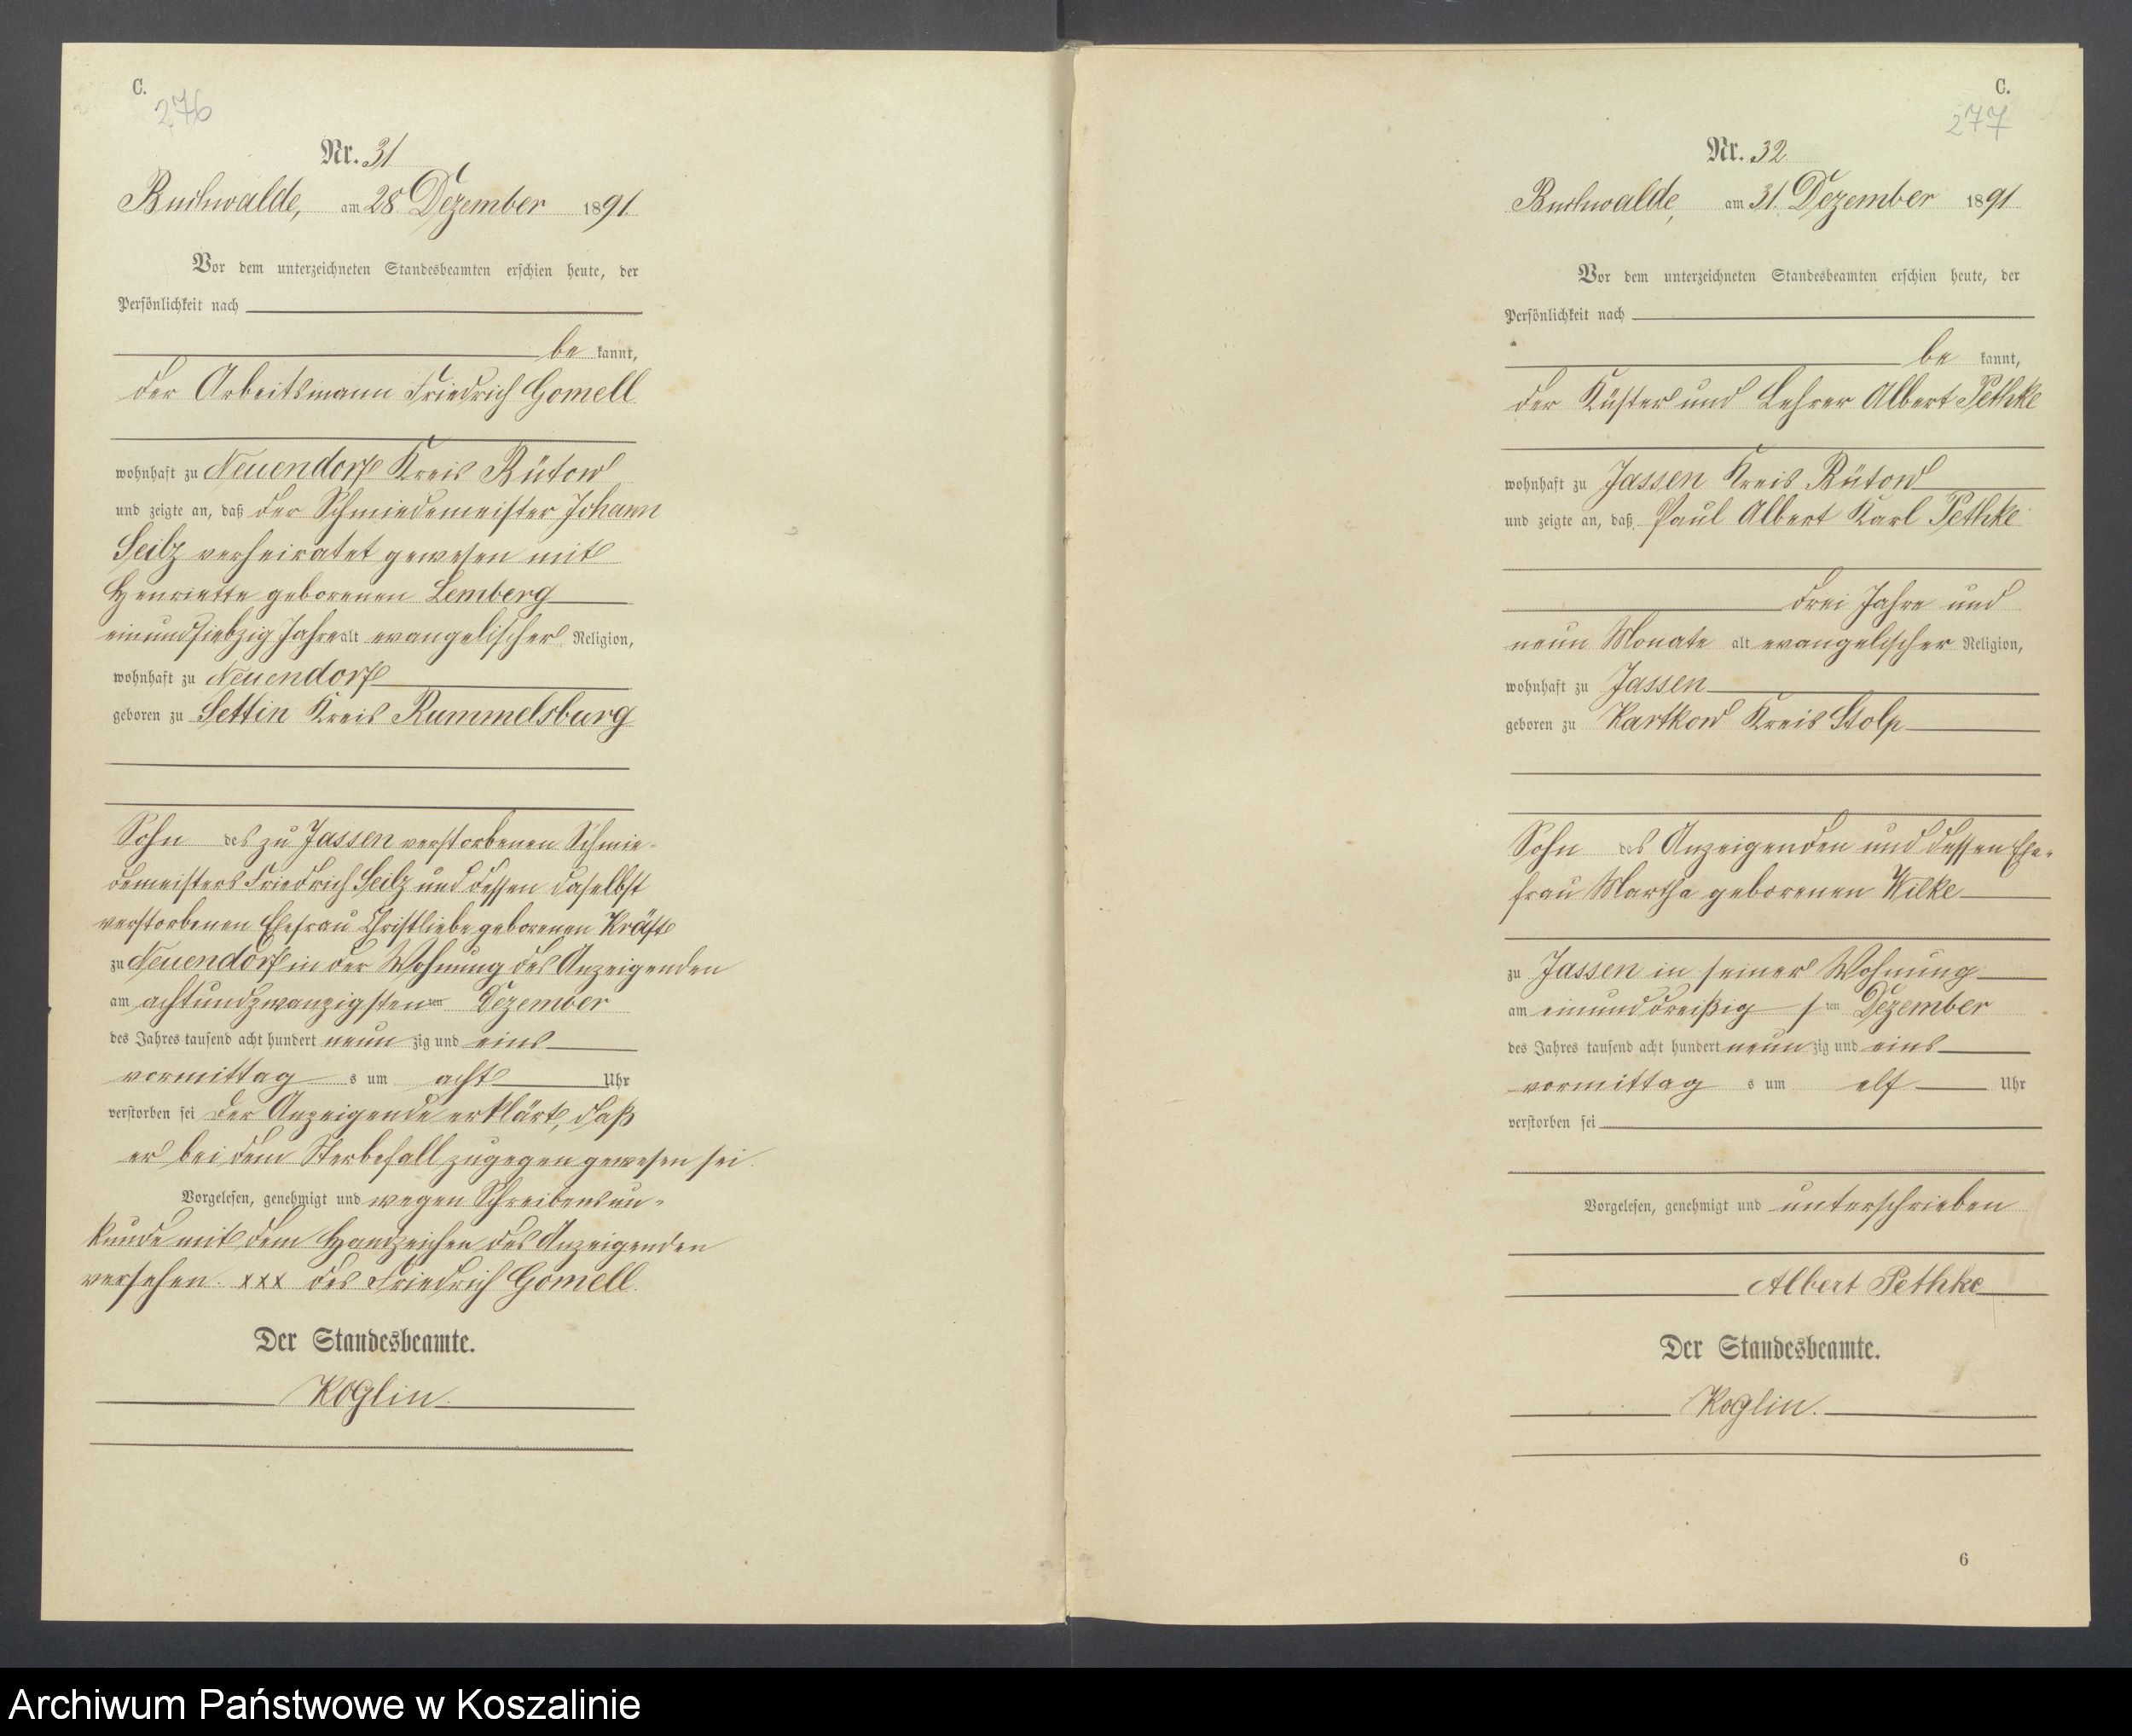 C.
276
Nr. 31
Buchwalde, am 28. Dezember 1891.
Vor dem unterzeichneten Standesbeamten erschien heute, der
Persönlichkeit nach
be kannt,
der Arbeitsmann Friedrich Gomell
wohnhaft zu Neuendorf Kreis Bütow
und zeigte an, daß der Schmiedemeister Johann
Seilz verheiratet gewesen mit
Henriette geborenen Lemberg
einundsiebzig Jahre alt evangelischer Religion,
wohnhaft zu Neuendorf
geboren zu Settin Kreis Rummelsburg
Sohn des zu Jassen verstorbenen Schmie-
demeisters Friedrich Seilz und dessen daselbst
verstorbenen Ehefrau Christliebe geborenen Kräft
zu Neuendorf in der Wohnung des Anzeigenden
am achtundzwanzigsten ten Dezember
des Jahres tausend acht hundert neun zig und eins
vormittag s um acht Uhr
verstorben sei der Anzeigende erklärt, daß
er bei dem Sterbefall zugegen gewesen sei.
Vorgelesen, genehmigt und wegen Schreibensun-
kunde mit dem Handzeichen des Anzeigenden
versehen. xxx des Friedrich Gomell.
Der Standesbeamte.
Koglin.
C.
277
Nr. 32
Buchwalde, am 31. Dezember 1891
Vor dem unterzeichneten Standesbeamten erschien heute, der
Persönlichkeit nach
be kannt,
der Küster und Lehrer Albert Pethke
wohnhaft zu Jassen Kreis Bütow
und zeigte an, daß Paul Albert Karl Pethke
drei Jahre und
neun Monate alt evangelischer Religion,
wohnhaft zu Jassen
geboren zu Kartkow Kreis Stolp
Sohn des Anzeigenden und dessen Ehe-
frau Martha geborenen Wilke
zu Jassen in seiner Wohnung
am einunddreißig s ten Dezember
des Jahres tausend acht hundert neun zig und eins
vormittag s um elf Uhr
verstorben sei
Vorgelesen, genehmigt und unterschrieben
Albert Pethke
Der Standesbeamte.
Koglin.
6
Archiwum Państwowe w Koszalinie